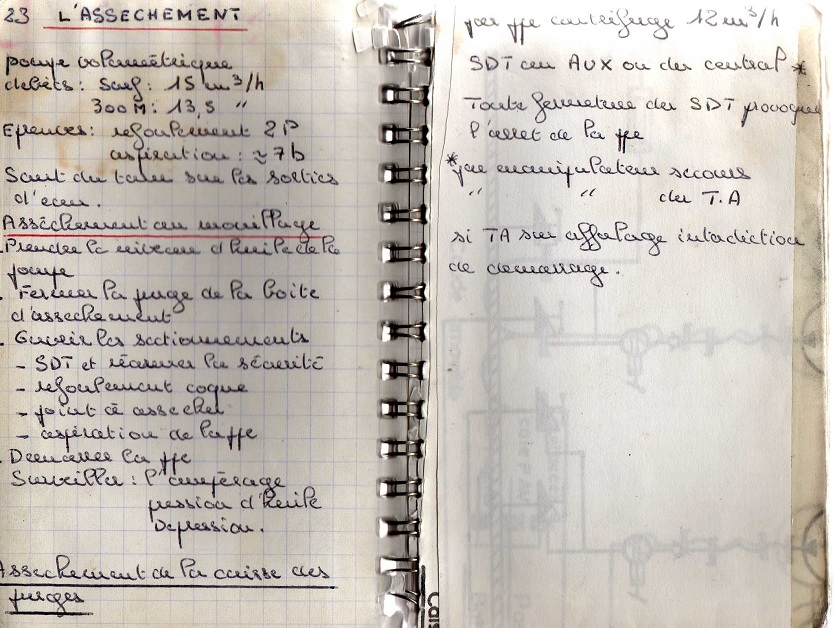 23 L'ASSECHEMENT
pompe volumétrique
debits: Surf: 15 m³/h
300 M: 13,5 "
Epreuves: refoulement 2P
aspiration: ≈ 7b
Saut du tam sur les sorties
d'eau.
Asséchement au mouillage
. Prendre le niveau d'huile de la
pompe
. Fermer la purge de la boite
d'assechement
. Ouvrir les sectionnements
- SDT et réarmer la sécurité
- refoulement coque
- point à assecher
- aspiration de la ppe
. Demarrer la ppe
Surveiller: l'ampérage
pression d'huile
Depression.
Assechement de la caisse des
purges
par ppe centrifuge 12 m³/h
SDT au AUX ou du central *
Toute fermeture du SDT provoque
l'arret de la ppe
* par manipulateur secours
" " du T.A
si TA sur affalage interdiction
de demarrage.